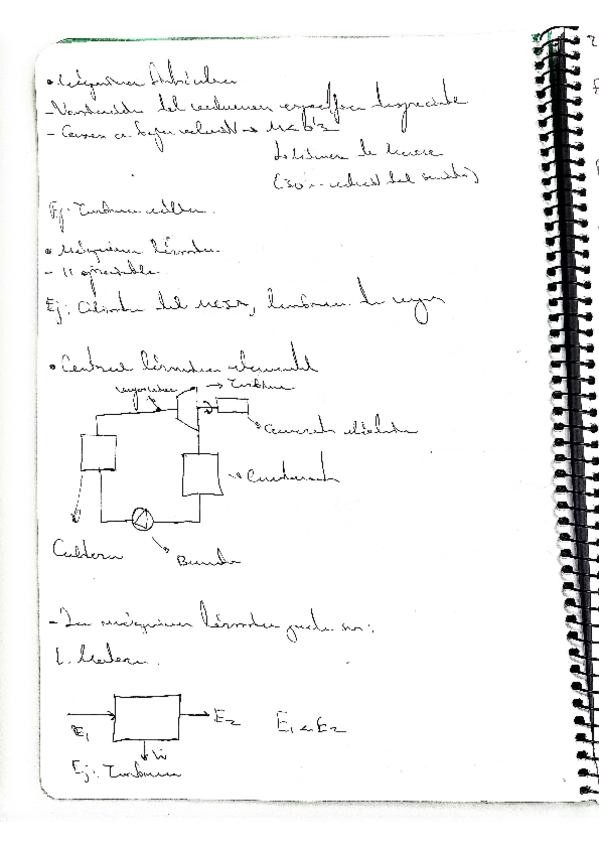 • Máquinas hidráulicas
- Variación del volumen específico despreciable
- Gases a baja velocidad → M < 0'3
Número de Mach
(velocidad del sonido)
Ej: Turbina eólica.
• Máquinas térmicas.
- apreciable
Ej: Cilindro del MCIA, turbinas de vapor
• Central térmica elemental
→ Turbina
Generador eléctrico
Condensador
Caldera
Bomba
- Las máquinas térmicas pueden ser:
1. Motora.
E₁ E₂
Ẇ
Ej: Turbina